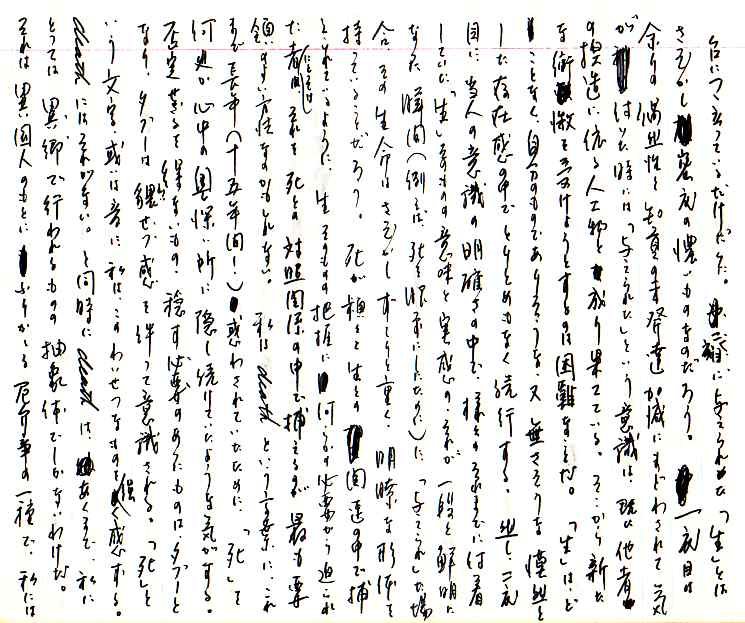 台につくられているだけだった。第二義に与えられた「生」とは
さぞかし裏側の懐いものなのだろう。一度目は
余りの偶然性と知覚の未発達加減にまどわされて気
が付いた時には「与えられた」という意識は、既に他者
の模造に依る人工物と成り果てている。そこから新た
な衝撃を受けようとするのは困難なことだ。「生」は、ど
ことなく、自分のものでありそうな、又無さそうな、漠然と
した存在感の中でとりとめもなく続行する。然し、二度
目に当人の意識の明確さの中で、様々のそれまでに付着
していた「生」そのものの意味と実感の、それが一段と鮮明に
なった瞬間（例えば、死を眼前にしたのに）に「与えられ」た場
合、その生命はさぞかしずしりと重く、明瞭な形体を
持っているはずだろう。死が頼って生との関連の中で捕
えられているように、生そのものの把握に何らかの必要から迫られ
た者にとっては、それを死との対照関係の中で捕えるのが最も要
領のよい方法なのかもしれない。私はdeathという言葉に、これ
まで長年（十五年間！）惑わされていたのに、「死」を
何処か心中の奥深い所に隠し続けていたような気がする。
否定せざるを得ないもの、隠す必要のあったものは、タブーと
なり、タブーは猥せつ感を伴って意識される。「死」と
いう文字、或いは音に、私は、このわいせつなものを強く感ずる。
deathにはそれがない。と同時にdeathは、あくまで、私に
とっては異郷で行われるものの抽象体でしかないわけだ。
それは異国人のもとにふりかかる厄介事の一種で、私には